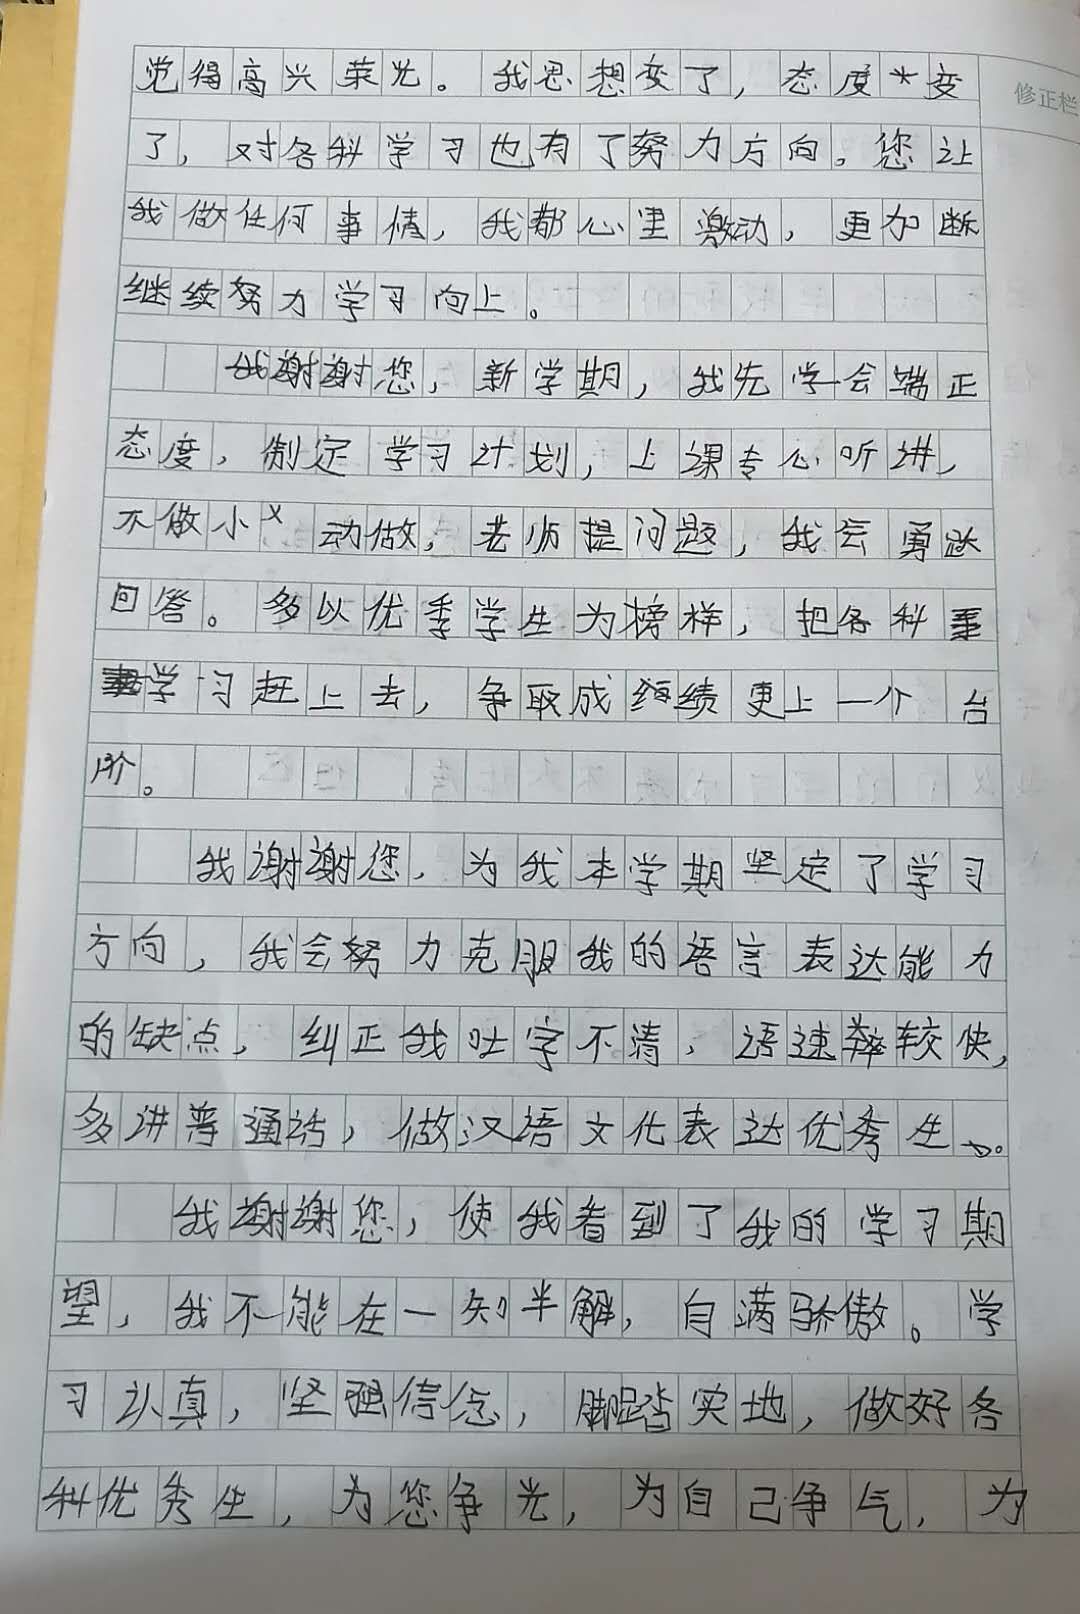 觉得高兴荣光。我思想变了，态度*变
修正栏
了，对各科学习也有了努力方向。您让
我做任何事情，我都心里激动，更加断
继续努力学习向上。
我谢谢您，新学期，我先学会端正
态度，制定学习计划，上课专心听讲，
不做小动做，老师提问题，我会勇跃
回答。多以优季学生为榜样，把各科
学习赶上去，争取成绩更上一个台
阶。
我谢谢您，为我本学期坚定了学习
方向，我会努力克服我的语言表达能力
的缺点，纠正我吐字不清，语速较快，
多讲普通话，做汉语文化表达优秀生。
我谢谢您，使我看到了我的学习期
望，我不能在一知半解，自满骄傲。学
习认真，坚强信念，脚踏实地，做好各
科优秀生，为您争光，为自己争气，为